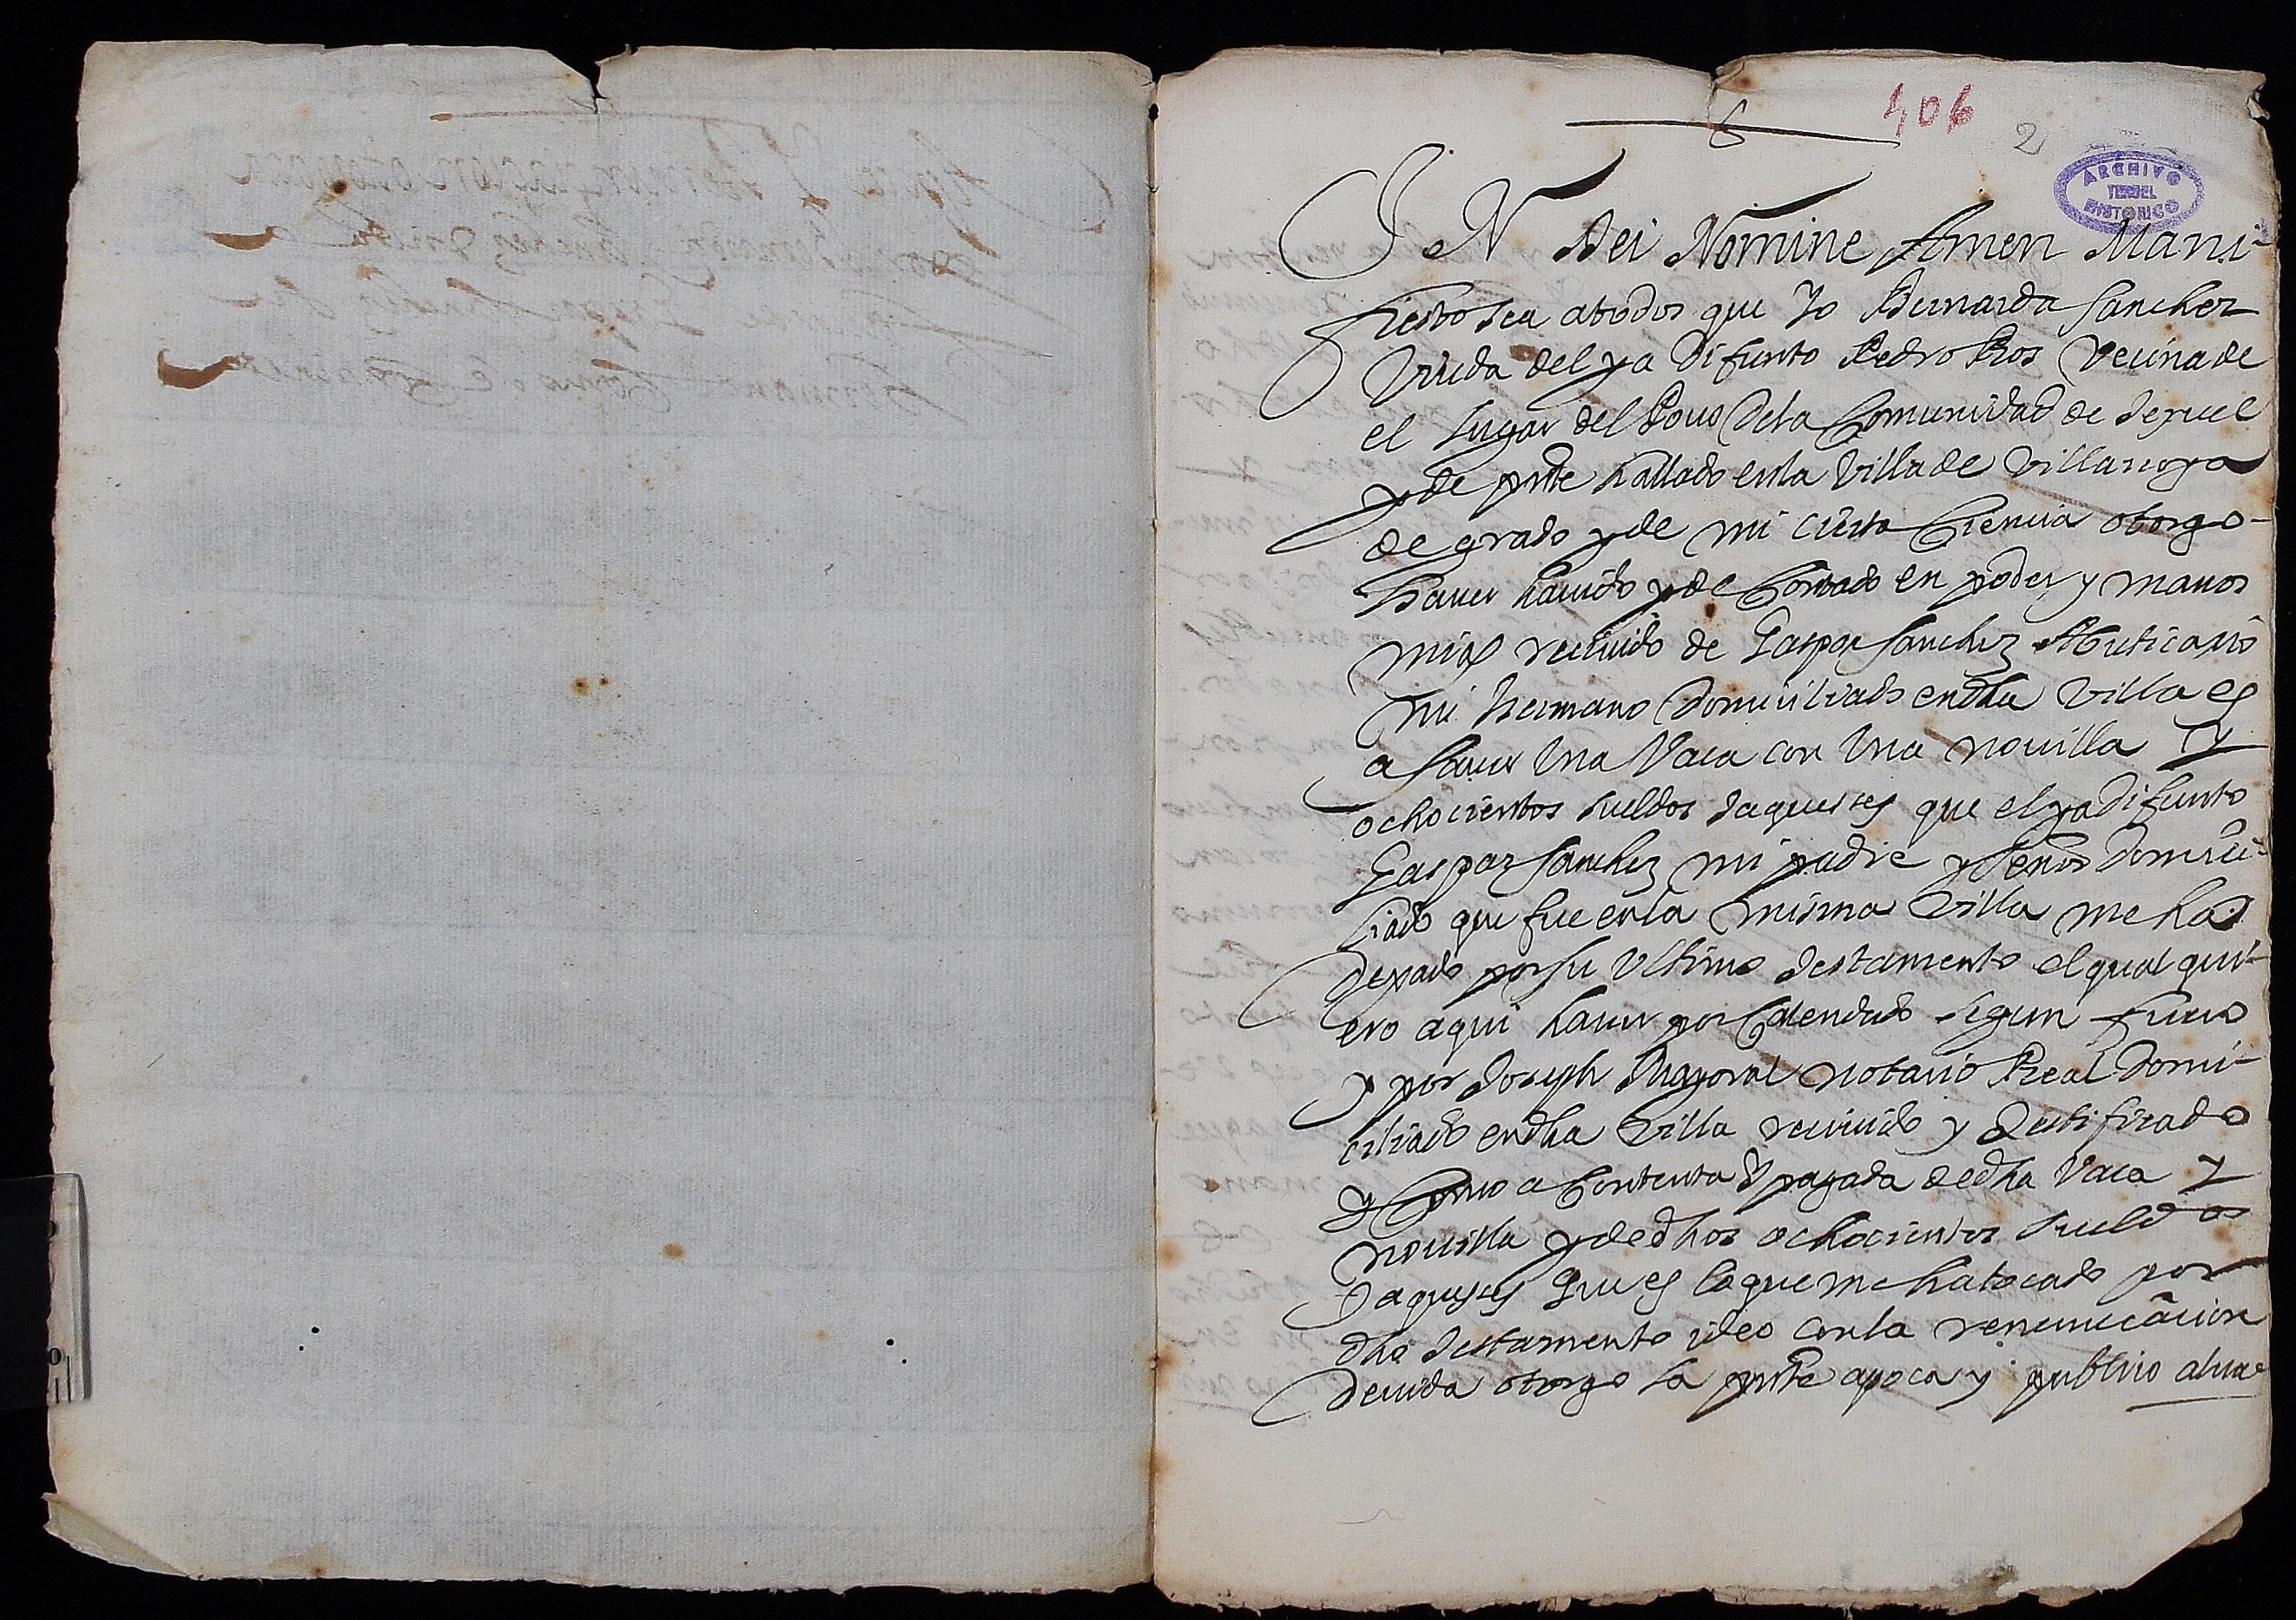 406
2
ARCHIVO
TERUEL
HISTORICO
In Dei Nomine Amen Mani-
fiesto sea atodos que Yo Bernarda Sanchez
Viuda del ya difunto Pedro Ros Vecina de
el lugar del Pouo Dela Comunidad de Teruel
y de pnte hallado enla Villa de Villarroya
de grado y de mi cierta Ciencia otorgo
hauer hauido y de Contado en poder y manos
mias reciuido de Gaspar Sanchez Aboticario
mi hermano Domiciliado endha Villa es
a sauer Una Vaca con Una nouilla Y
ochocientos sueldos Jaqueses que el ya difunto
Gaspar Sanchez mi padre y señor Domici-
liado que fue enla misma Villa me ha
dexado por su Ultimo testamento el qual qui-
ero aqui hauer por Calendado segun fuero
y por Joseph Mayoral notario Real Domi-
ciliado endha Villa reciuido y testificado
y Como a Contenta y pagada dedha Vaca Y
nouilla y dedhos ochocientos sueldos
Jaqueses que es loque me hatocado por
dho testamento ideo conla renunciacion
deuida otorgo la pnte apoca y publico alua-